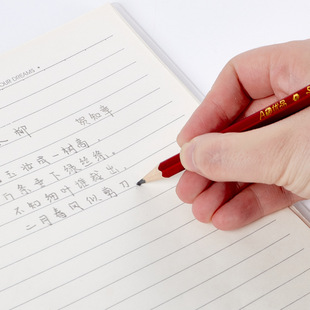 OUR DREAMS
柳 贺知章
玉妆成一树高
条垂下绿丝绦。
不知细叶谁裁出，
二月春风似剪刀
A 优品